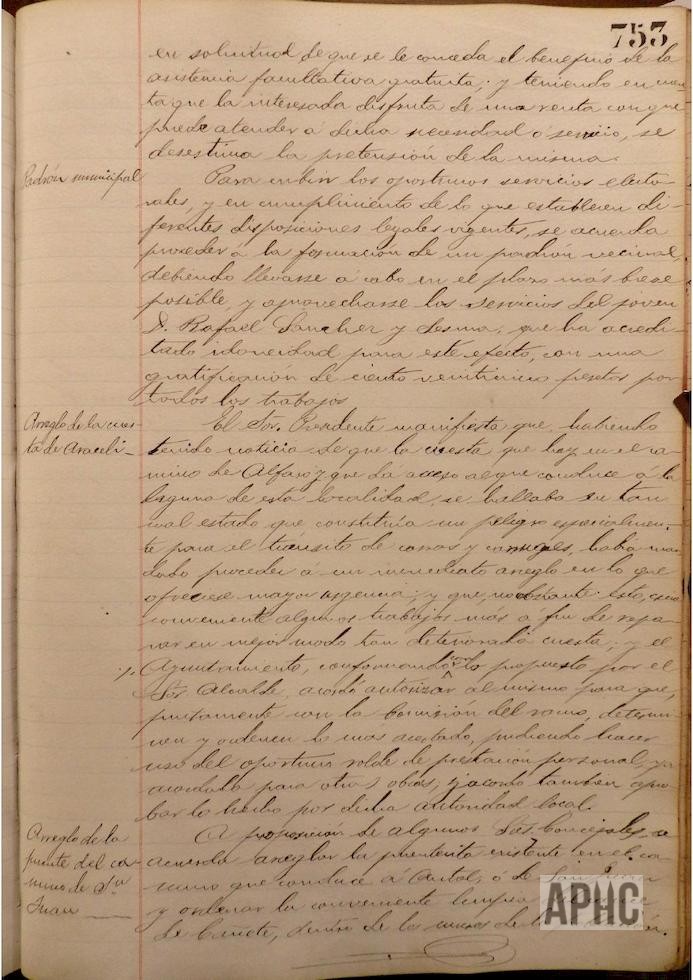 753
en solicitud de que se le conceda el beneficio de la
asistencia facultativa gratuita; y teniendo en cuen-
ta que la interesada disfruta de una renta con que
puede atender á dicha necesidad ó servicio, se
desestima la pretensión de la misma.
Padrón municipal
Para cubrir los oportunos servicios electo-
rales, y en cumplimiento de lo que establecen di-
ferentes disposiciones legales vigentes, se acuerda
proceder á la formación de un padrón vecinal,
debiendo llevarse á cabo en el plazo más breve
posible y aprovecharse los servicios del joven
D. Rafael Sanchez y Lesma, que ha acredi-
tado idoneidad para este efecto, con una
gratificación de ciento veinticinco pesetas por
todos los trabajos
Arreglo de la cues-
ta de Araceli-
El Sor. Presidente manifiesta que, habiendo
tenido noticia de que la cuesta que hay en el ca-
mino de Alfaro y que da acceso al que conduce á la
laguna de esta localidad, se hallaba en tan
mal estado que constituía un peligro especialmen-
te para el tránsito de carros y carruajes, había man-
dado proceder á un inmediato arreglo en lo que
ofreciese mayor urgencia; y que, no obstante esto, cree
conveniente algunos trabajos más á fin de repa-
rar en mejor modo tan deteriorada cuesta; y el
Ayuntamiento, conformando con lo propuesto por el
Sor. Alcalde, acordó autorizar al mismo para que,
juntamente con la Comisión del ramo, determi-
nen y ordenen lo más acertado, pudiendo hacer
uso del oportuno rolde de prestación personal, ya
acordada para otras obras, y acordó tambien apro-
bar lo hecho por dicha autoridad local.
Arreglo de la
puente del ca-
mino de Sn
Juan
A proposición de algunos Sres. Concejales se
acuerda arreglar la puentecita existente en el ca-
mino que conduce á Autol, ó de San Juan
y ordenar la conveniente limpia
de, dentro de los muros de la
APHC